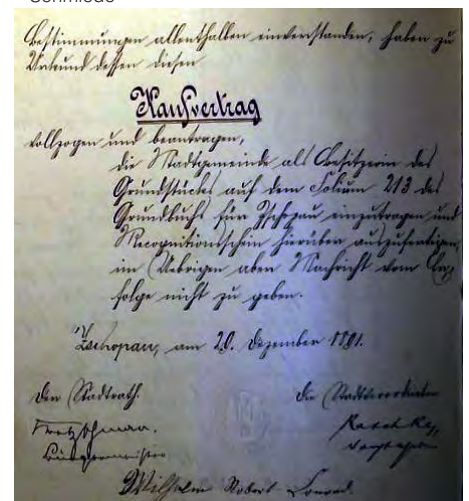 Schmiede
Bestimmungen allenthalben einverstanden, haben zu
Urkund dessen diesen
Kaufvertrag
vollzogen und beantragen,
die Stadtgemeinde als Besitzerin des
Grundstücks auf dem Folium 213 des
Grundbuchs für Zschopau einzutragen und
Recognitionsschein hierüber auszufertigen,
im Uebrigen aber Nachricht vom Er,
folge nicht zu geben.
Zschopau, am 29. Dezember 1891.
Der Stadtrath.
Die Stadtverordneten
Bürgermeister
Wilhelm Robert